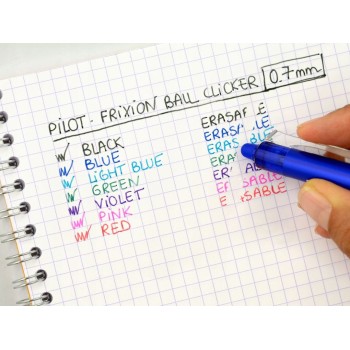 PILOT - FRIXION BALL CLICKER 0.7mm
BLACK
BLUE
LIGHT BLUE
GREEN
VIOLET
PINK
RED
ERASABLE
ERASABLE
ERAS BLE
ERA
ER ABLE
ER SABLE
E SABLE